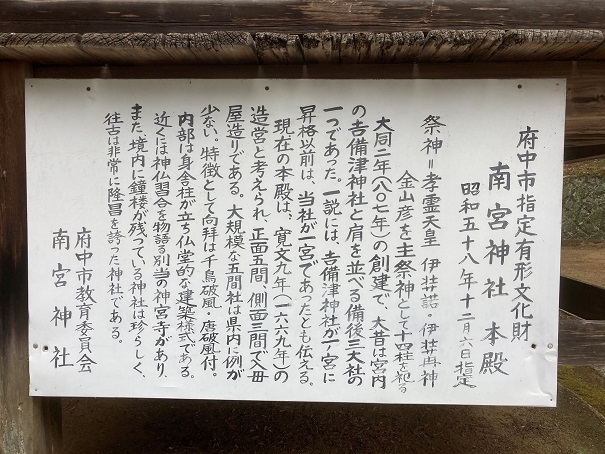 府中市指定有形文化財
南宮神社本殿
昭和五十八年十二月六日指定
祭神＝孝霊天皇 伊弉諾・伊弉冉神
金山彦を主祭神として十四柱を祀る
大同二年(八〇七年)の創建で、大昔は宮内
の吉備津神社と肩を並べる備後三大社の
一つであった。一説には、吉備津神社が一宮に
昇格以前は、当社が一宮であったとも伝える。
現在の本殿は、寛文九年(一六六九年)の
造営と考えられ、正面五間、側面三間で入母
屋造りである。大規模な五間社は県内に例が
少ない。特徴として向拝は千鳥破風・唐破風付。
内部は身舎柱が立ち仏堂的な建築様式である。
近くには神仏習合を物語る別当の神宮寺があり、
また、境内に鐘楼が残っている神社は珍らしく、
往古は非常に隆昌を誇った神社である。
府中市教育委員会
南宮神社